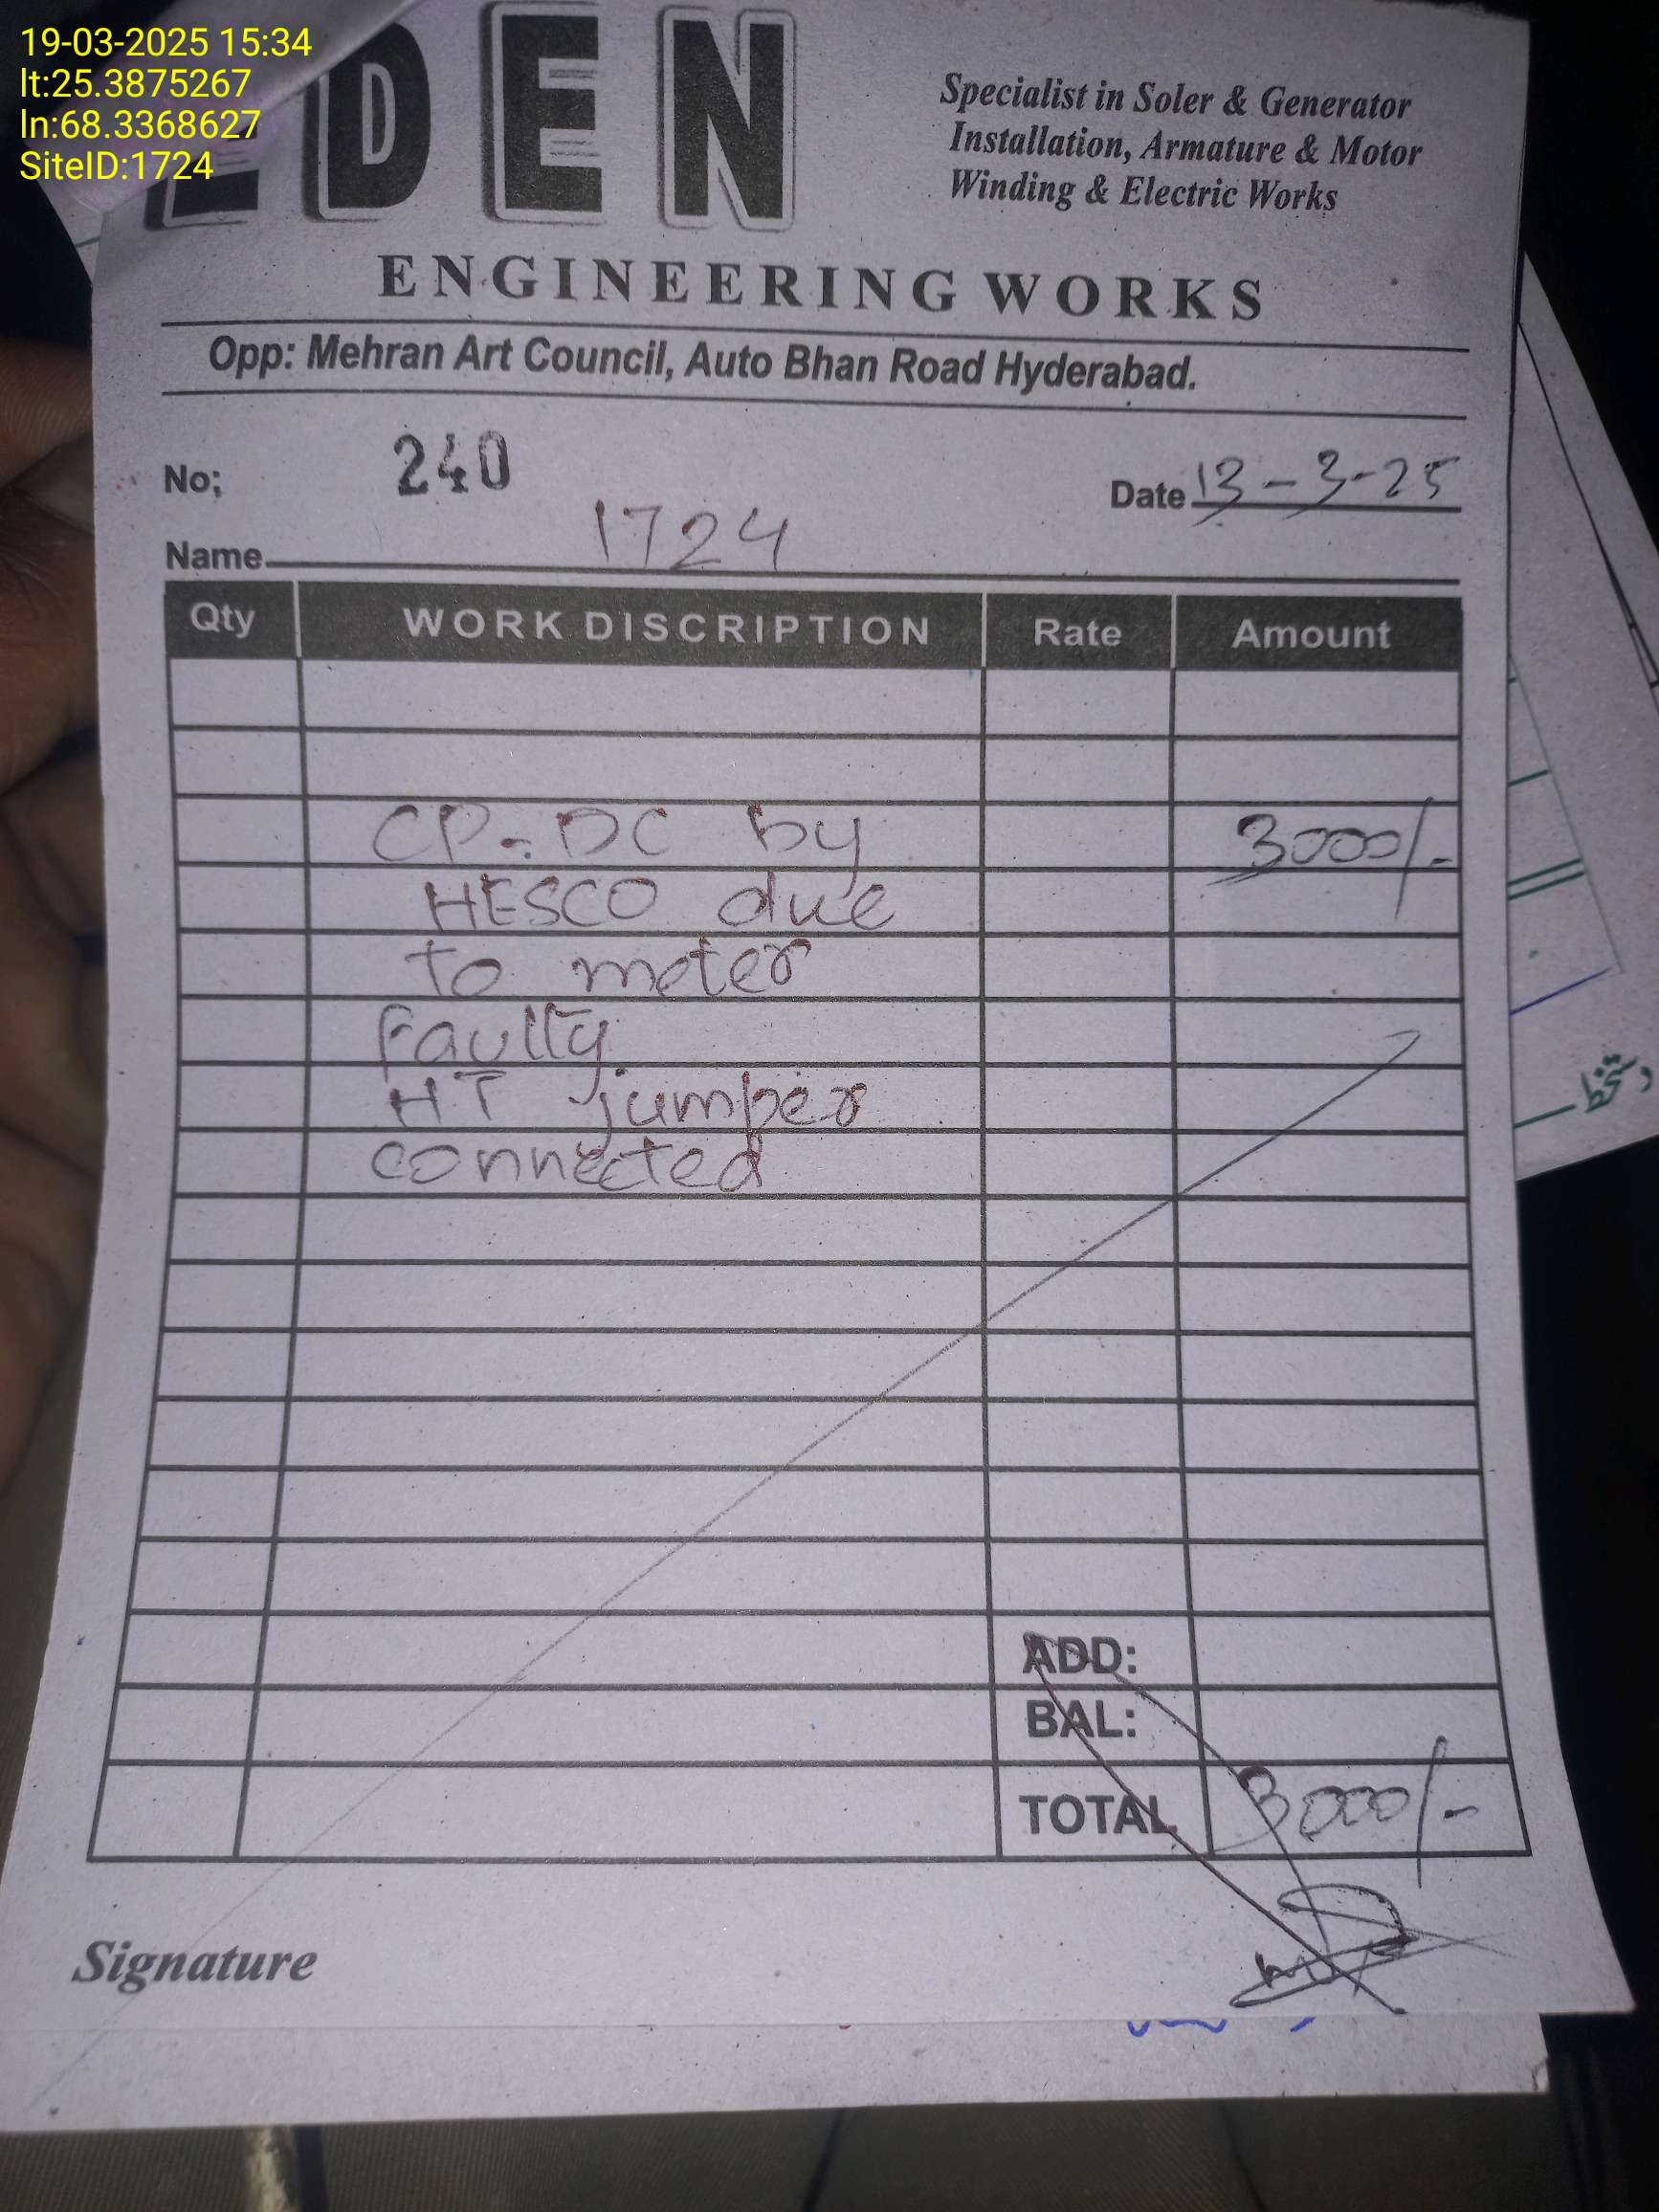 19-03-2025 15:34
lt:25.3875267
ln:68.3368627
SiteID:1724
EDEN
Specialist in Soler & Generator
Installation, Armature & Motor
Winding & Electric Works
ENGINEERING WORKS
Opp: Mehran Art Council, Auto Bhan Road Hyderabad.
No; 240 Date 13-3-25
Name 1724
Qty WORK DISCRIPTION Rate Amount
CP-DC by 3000/-
HESCO due
to meter
Faulty
HT jumper
connected
ADD:
BAL:
TOTAL 3000/-
Signature
دستخط